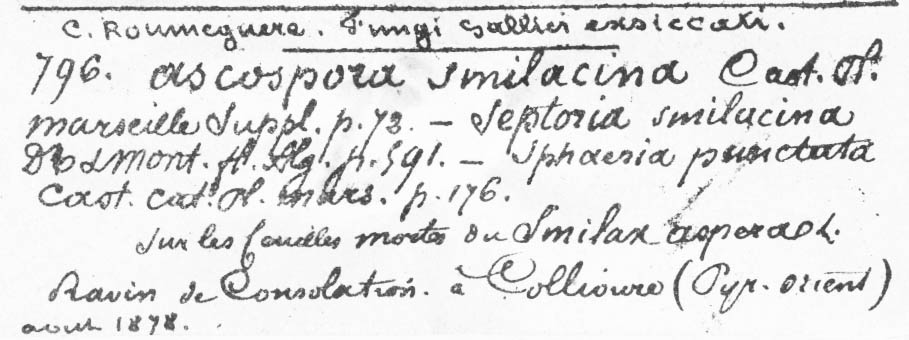 C. Roumeguere. Fungi Gallici exsiccati.
796. ascospora smilacina Cast. Pl.
marseille Suppl. p. 72. — Septoria smilacina
D R & Mont. fl. Alg. p. 591. — Sphaeria punctata
Cast. cat. Pl. mars. p. 176.
Sur les feuilles mortes du Smilax aspera L.
Ravin de Consolation. à Collioure (Pyr. orient)
aout 1878.